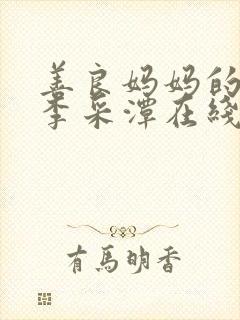 善良妈妈的
李采潭在綫
有馬明香